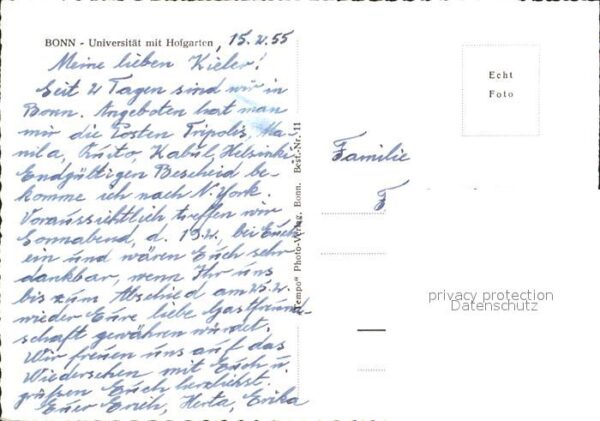 BONN - Universität mit Hofgarten, 15.2.55
Meine lieben Kieler!
Seit 2 Tagen sind wir in
Bonn. Angeboten hat man
mir die Posten Tripolis, Ma-
nila, Quito, Kabul, Helsinki.
Endgültigen Bescheid be-
komme ich nach N. York.
Voraussichtlich treffen wir
Sonnabend, d. 19.2., bei Euch
ein und wären Euch sehr
dankbar, wenn Ihr uns
bis zum Abschied am 25.2.
wieder Eure liebe Gastfreund-
schaft gewähren würdet.
Wir freuen uns auf das
Wiedersehen mit Euch u.
grüßen Euch herzlichst.
Euer Erich, Herta, Erika
"Tempo" Photo-Verlag, Bonn. Best.-Nr. 11
Echt
Foto
Familie
F
privacy protection
Datenschutz